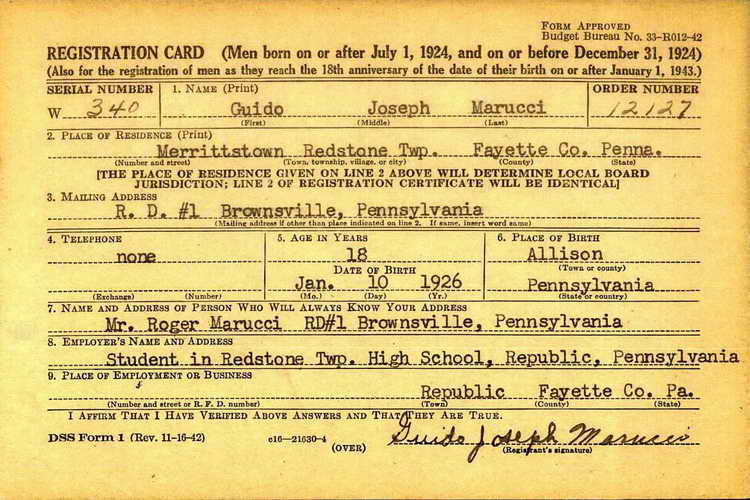 FORM APPROVED
Budget Bureau No. 33-R012-42
REGISTRATION CARD (Men born on or after July 1, 1924, and on or before December 31, 1924)
(Also for the registration of men as they reach the 18th anniversary of the date of their birth on or after January 1, 1943.)
SERIAL NUMBER 1. NAME (Print) ORDER NUMBER
W 340 Guido Joseph Marucci 12127
(First) (Middle) (Last)
2. PLACE OF RESIDENCE (Print)
Merrittstown Redstone Twp. Fayette Co. Penna.
(Number and street) (Town, township, village, or city) (County) (State)
[THE PLACE OF RESIDENCE GIVEN ON LINE 2 ABOVE WILL DETERMINE LOCAL BOARD
JURISDICTION; LINE 2 OF REGISTRATION CERTIFICATE WILL BE IDENTICAL]
3. MAILING ADDRESS
R. D. #1 Brownsville, Pennsylvania
(Mailing address if other than place indicated on line 2. If same, insert word same)
4. TELEPHONE 5. AGE IN YEARS 6. PLACE OF BIRTH
none 18 Allison
DATE OF BIRTH (Town or county)
Jan. 10 1926 Pennsylvania
(Exchange) (Number) (Mo.) (Day) (Yr.) (State or country)
7. NAME AND ADDRESS OF PERSON WHO WILL ALWAYS KNOW YOUR ADDRESS
Mr. Roger Marucci RD#1 Brownsville, Pennsylvania
8. EMPLOYER'S NAME AND ADDRESS
Student in Redstone Twp. High School, Republic, Pennsylvania
9. PLACE OF EMPLOYMENT OR BUSINESS
Republic Fayette Co. Pa.
(Number and street or R. F. D. number) (Town) (County) (State)
I AFFIRM THAT I HAVE VERIFIED ABOVE ANSWERS AND THAT THEY ARE TRUE.
DSS Form 1 (Rev. 11-16-42) c16—21630-4 (OVER) Guido Joseph Marucci
(Registrant's signature)